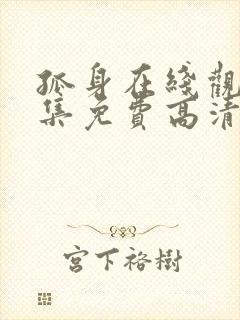 孤身在綫觀
集免費高清
宮下裕樹